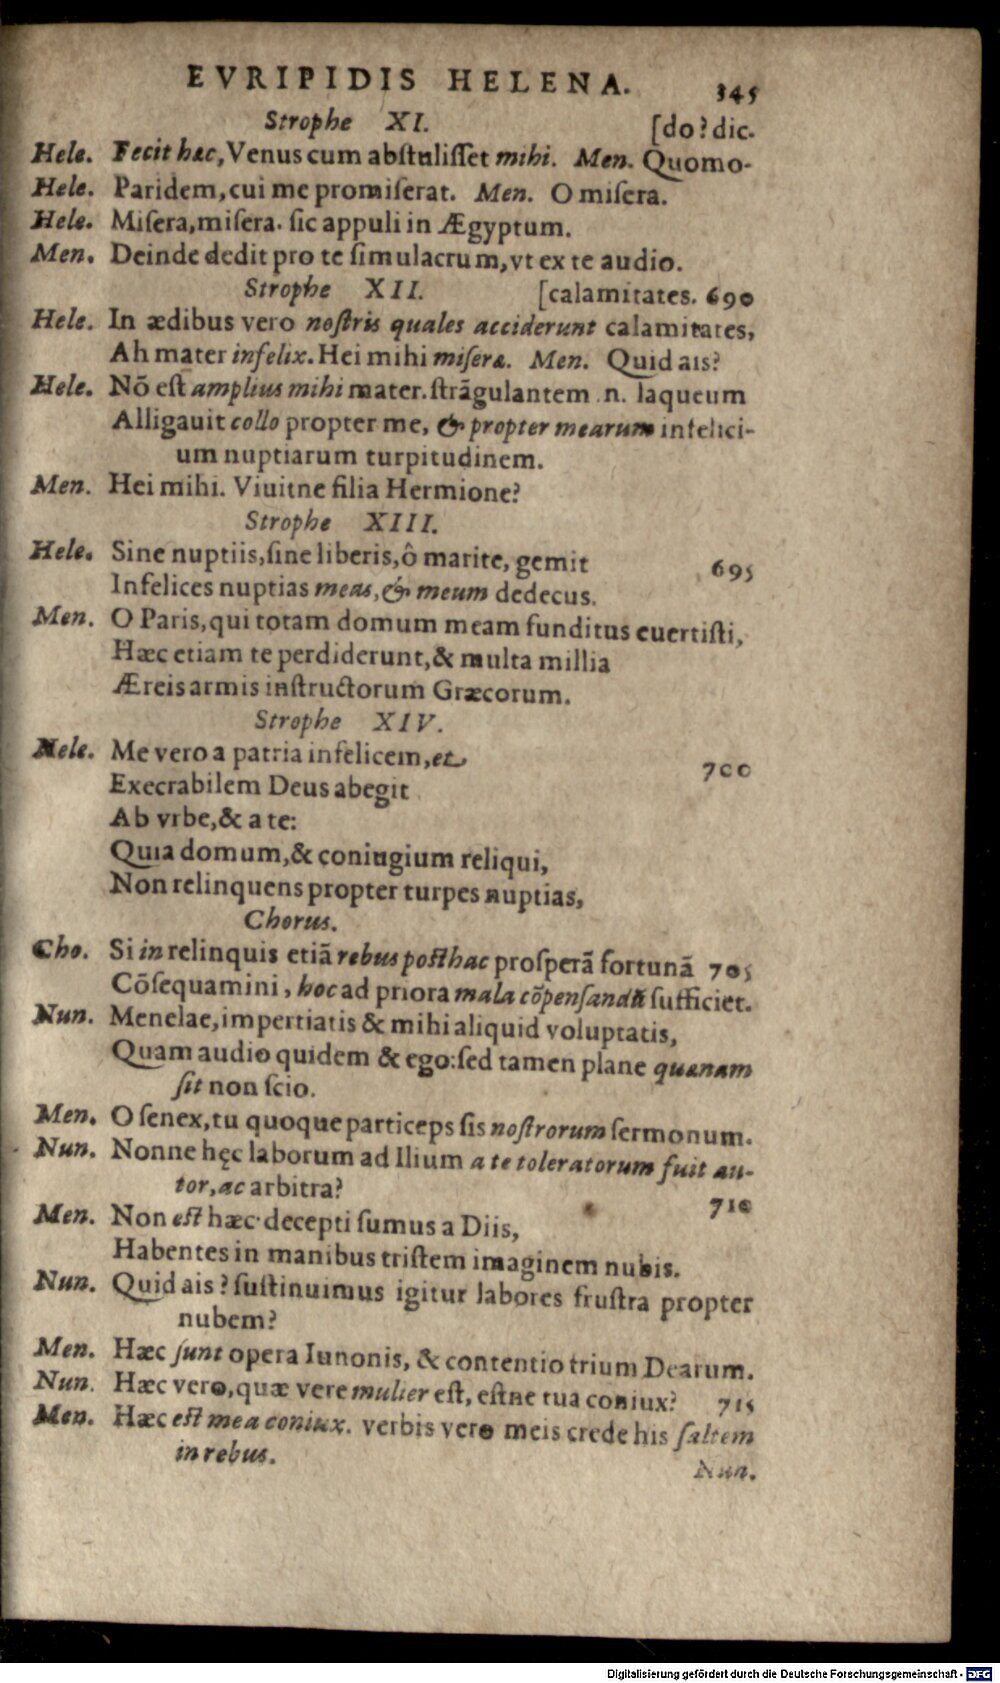 EVRIPIDIS HELENA. 345
Strophe XI. [do? dic.
Hele. Fecit hæc, Venus cum abstulisset mihi. Men. Quomo-
Hele. Paridem, cui me promiserat. Men. O misera.
Hele. Misera, misera. sic appuli in Ægyptum.
Men. Deinde dedit pro te simulacrum, vt ex te audio.
Strophe XII. [calamitates. 690
Hele. In ædibus vero nostris quales acciderunt calamitates,
Ah mater infelix. Hei mihi miseræ. Men. Quid ais?
Hele. Nõ est amplius mihi mater. strãgulantem .n. laqueum
Alligauit collo propter me, & propter mearum infelici-
um nuptiarum turpitudinem.
Men. Hei mihi. Viuitne filia Hermione?
Strophe XIII.
Hele. Sine nuptiis, sine liberis, ô marite, gemit 695
Infelices nuptias meas, & meum dedecus.
Men. O Paris, qui totam domum meam funditus euertisti,
Hæc etiam te perdiderunt, & multa millia
Æreis armis instructorum Græcorum.
Strophe XIV.
Hele. Me vero a patria infelicem, et 700
Execrabilem Deus abegit
Ab vrbe, & a te:
Quia domum, & coniugium reliqui,
Non relinquens propter turpes nuptias,
Chorus.
Cho. Si in relinquis etiã rebus posthac prosperã fortunã 705
Cõsequamini, hoc ad priora mala cõpensandũ sufficiet.
Nun. Menelae, impertiatis & mihi aliquid voluptatis,
Quam audio quidem & ego: sed tamen plane quænam
sit non scio.
Men. O senex, tu quoque particeps sis nostrorum sermonum.
Nun. Nonne hęc laborum ad Ilium a te toleratorum fuit au-
tor, ac arbitra? 710
Men. Non est hæc· decepti sumus a Diis,
Habentes in manibus tristem imaginem nubis.
Nun. Quid ais? sustinuimus igitur labores frustra propter
nubem?
Men. Hæc sunt opera Iunonis, & contentio trium Dearum.
Nun. Hæc vero, quæ vere mulier est, estne tua coniux? 715
Men. Hæc est mea coniux. verbis vero meis crede his saltem
in rebus.
Nun.
Digitalisierung gefördert durch die Deutsche Forschungsgemeinschaft - DFG